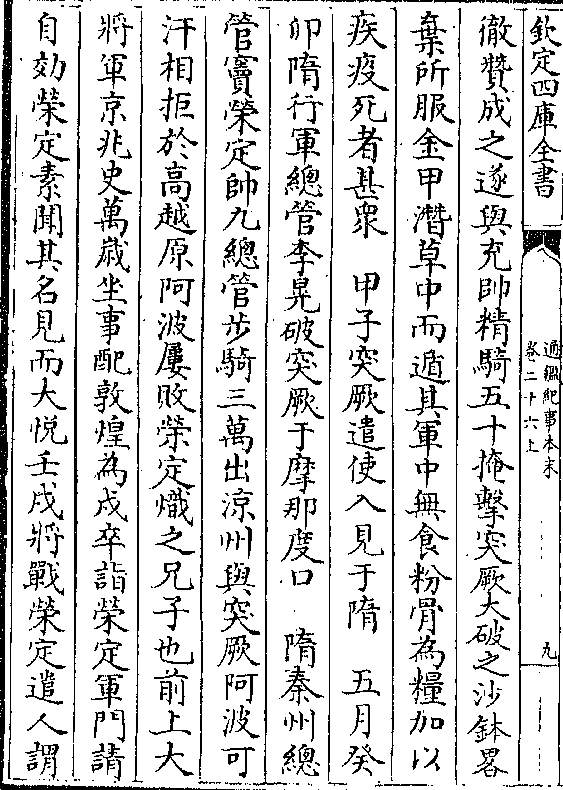 欽定四庫全書
通鑑紀事本末
卷二十六上
九
徹贊成之遂與充帥精騎五十掩擊突厥大破之沙鉢畧
棄所服金甲潛草中而遁其軍中無食粉骨為糧加以
疾疫死者甚衆　甲子突厥遣使入見于隋　五月癸
卯隋行軍總管李晃破突厥于摩那度口　隋秦州總
管竇榮定帥九總管步騎三萬出涼州與突厥阿波可
汗相拒於高越原阿波屢敗榮定熾之兄子也前上大
將軍京兆史萬歲坐事配敦煌為戍卒詣榮定軍門請
自効榮定素聞其名見而大悅壬戌將戰榮定遣人謂